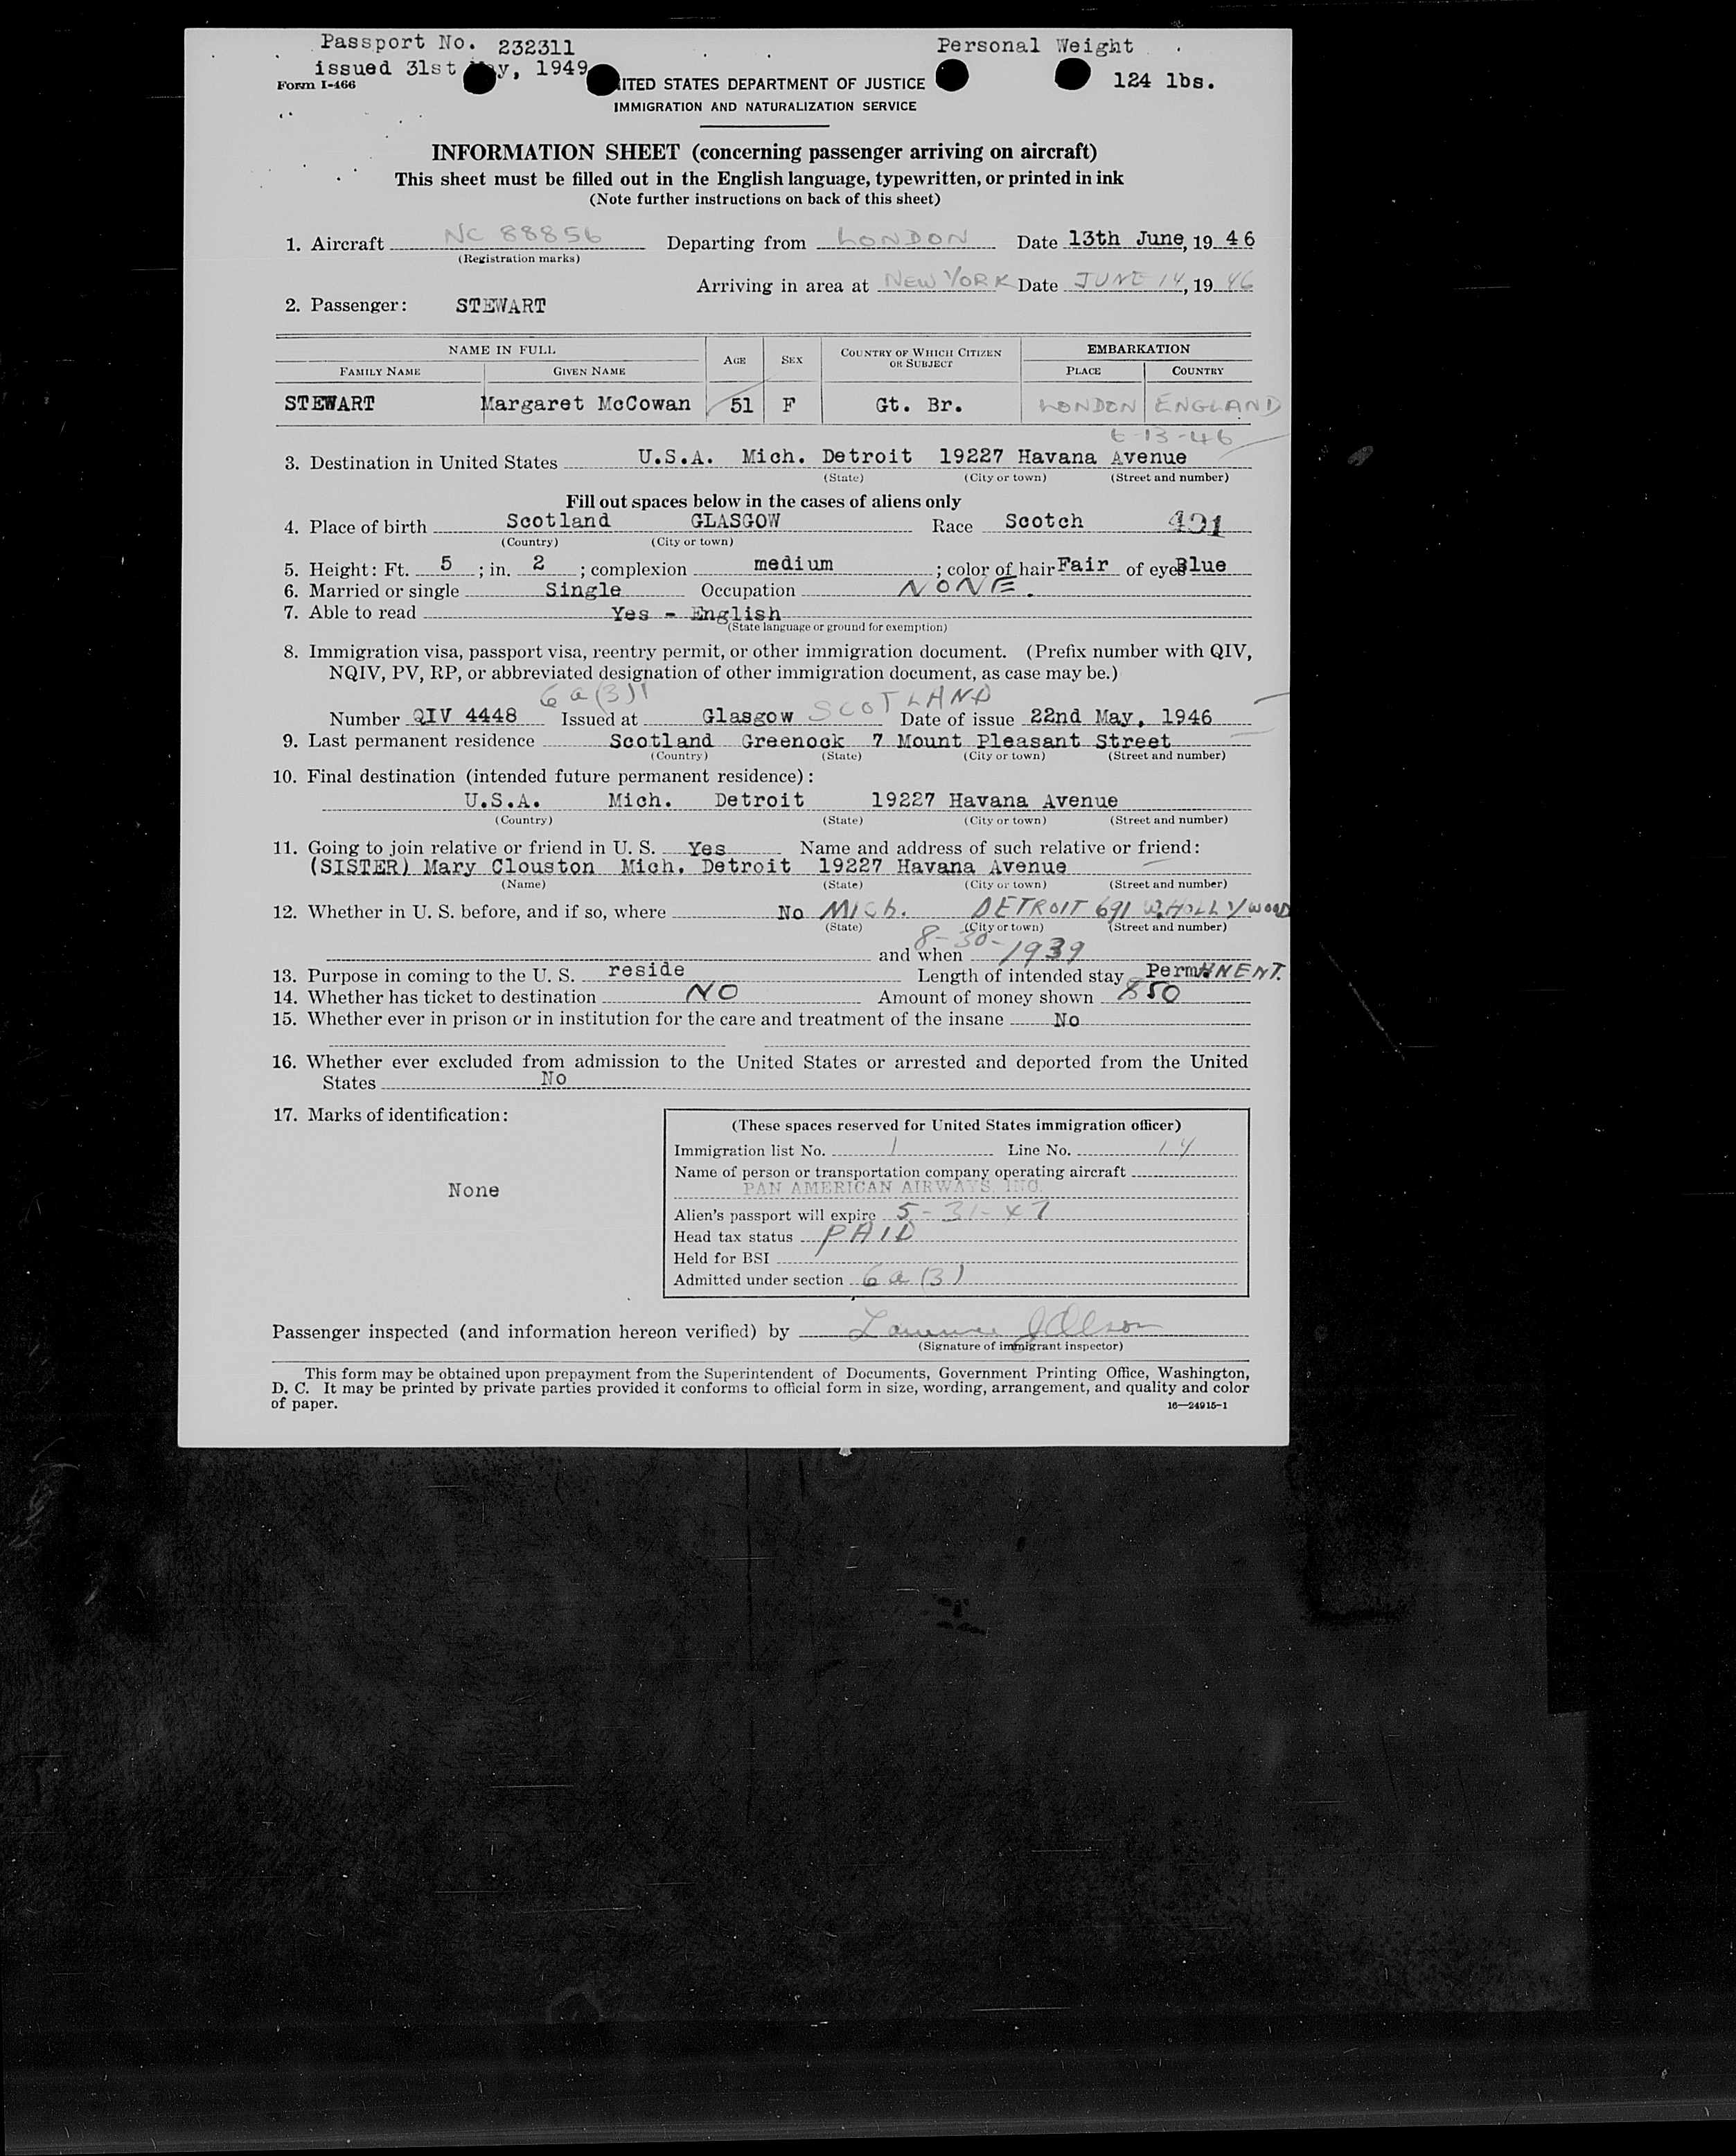 Passport No. 232311
issued 31st May, 1949
Personal Weight
124 lbs.
Form I-466
UNITED STATES DEPARTMENT OF JUSTICE
IMMIGRATION AND NATURALIZATION SERVICE
INFORMATION SHEET (concerning passenger arriving on aircraft)
This sheet must be filled out in the English language, typewritten, or printed in ink
(Note further instructions on back of this sheet)
1. Aircraft NC 88856 Departing from LONDON Date 13th June, 19 46
(Registration marks)
Arriving in area at NEW YORK Date JUNE 14, 19 46
2. Passenger: STEWART
NAME IN FULL AGE SEX COUNTRY OF WHICH CITIZEN OR SUBJECT EMBARKATION
FAMILY NAME GIVEN NAME PLACE COUNTRY
STEWART Margaret McCowan 51 F Gt. Br. LONDON ENGLAND
6-13-46
3. Destination in United States U.S.A. Mich. Detroit 19227 Havana Avenue
(State) (City or town) (Street and number)
Fill out spaces below in the cases of aliens only
4. Place of birth Scotland GLASGOW Race Scotch 401
(Country) (City or town)
5. Height: Ft. 5 ; in. 2 ; complexion medium ; color of hair Fair of eyes Blue
6. Married or single Single Occupation NONE.
7. Able to read Yes - English
(State language or ground for exemption)
8. Immigration visa, passport visa, reentry permit, or other immigration document. (Prefix number with QIV,
NQIV, PV, RP, or abbreviated designation of other immigration document, as case may be.)
6a(3)1
Number QIV 4448 Issued at Glasgow SCOTLAND Date of issue 22nd May, 1946
9. Last permanent residence Scotland Greenock 7 Mount Pleasant Street
(Country) (State) (City or town) (Street and number)
10. Final destination (intended future permanent residence):
U.S.A. Mich. Detroit 19227 Havana Avenue
(Country) (State) (City or town) (Street and number)
11. Going to join relative or friend in U. S. Yes Name and address of such relative or friend:
(SISTER) Mary Clouston Mich. Detroit 19227 Havana Avenue
(Name) (State) (City or town) (Street and number)
12. Whether in U. S. before, and if so, where No MICh. DETROIT 691 W. HOLLYWOOD
(State) (City or town) (Street and number)
and when 8-30-1939
13. Purpose in coming to the U. S. reside Length of intended stay PermANENT.
14. Whether has ticket to destination NO Amount of money shown $50
15. Whether ever in prison or in institution for the care and treatment of the insane No
16. Whether ever excluded from admission to the United States or arrested and deported from the United
States No
17. Marks of identification:
None
(These spaces reserved for United States immigration officer)
Immigration list No. 1 Line No. 14
Name of person or transportation company operating aircraft
PAN AMERICAN AIRWAYS, INC.
Alien's passport will expire 5-31-47
Head tax status PAID
Held for BSI
Admitted under section 6a(3)
Passenger inspected (and information hereon verified) by Lawrence J Olson
(Signature of immigrant inspector)
This form may be obtained upon prepayment from the Superintendent of Documents, Government Printing Office, Washington,
D. C. It may be printed by private parties provided it conforms to official form in size, wording, arrangement, and quality and color
of paper.
16—24915-1